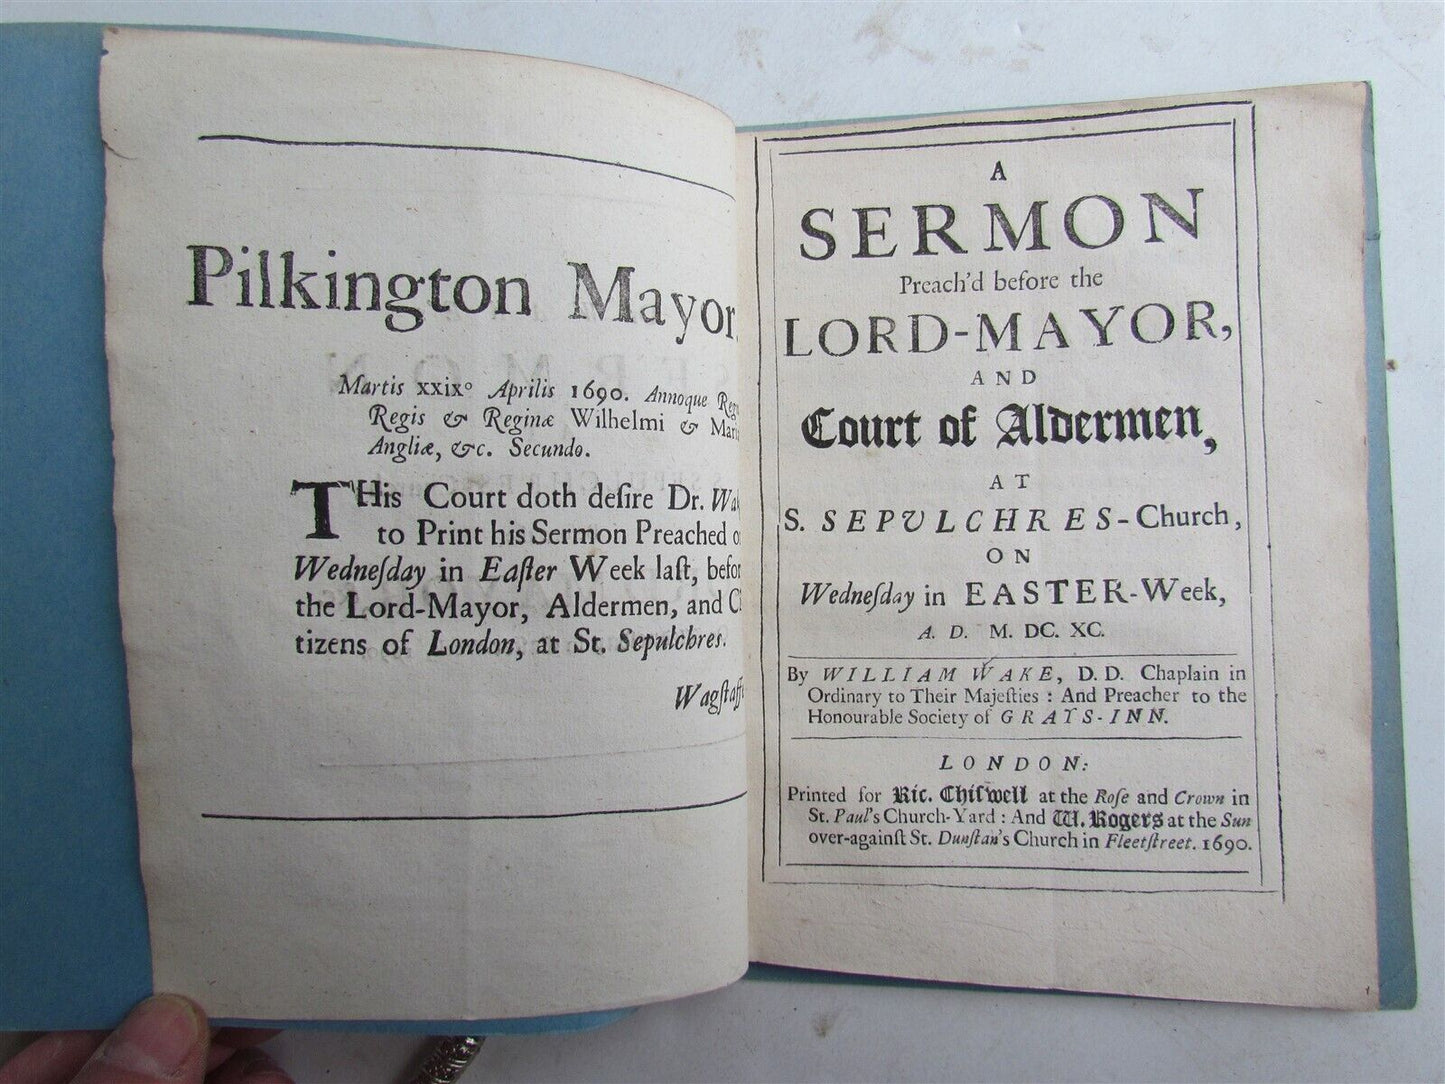 Pilkington Mayor,
Martis xxixº Aprilis 1690. Annoque
Regis & Reginæ Wilhelmi &
Angliæ, &c. Secundo.
THis Court doth deſire Dr.
to Print his Sermon Preached
Wedneſday in Eaſter Week laſt,
the Lord-Mayor, Aldermen, and
tizens of London, at St. Sepulchres.
A
SERMON
Preach'd before the
LORD-MAYOR,
AND
Court of Aldermen,
AT
S. SEPULCHRES-Church,
ON
Wedneſday in EASTER-Week,
A. D. M. DC. XC.
By WILLIAM WAKE, D. D. Chaplain in
Ordinary to Their Majeſties : And Preacher to the
Honourable Society of GRAYS-INN.
LONDON:
Printed for Ric. Chiſwell at the Roſe and Crown in
St. Paul's Church-Yard : And W. Rogers at the Sun
over-againſt St. Dunſtan's Church in Fleetſtreet. 1690.